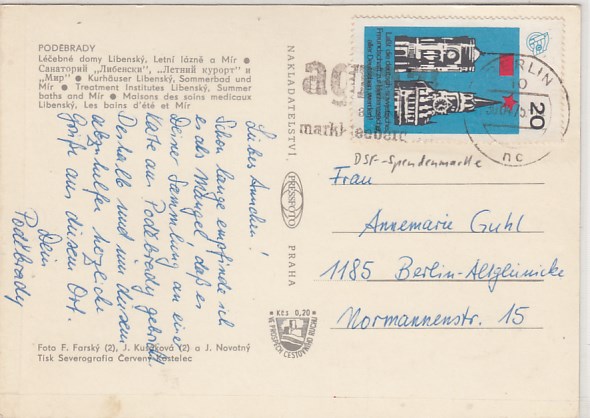 PODĚBRADY
Léčebné domy Libenský, Letní lázně a Mír •
Санаторий „Либенски", „Летний курорт" и
„Мир" • Kurhäuser Libenský, Sommerbad und
Mír • Treatment Institutes Libenský, Summer
baths and Mír • Maisons des soins medicaux
Libenský, Les bains d'été et Mír
Liebes Annchen!
Schon lange empfinde ich
es als Mangel, daß es
Deiner Sammlung an einer
Karte aus Poděbrady gebricht.
Deshalb und um diesem
abzuhelfen herzliche
Grüße aus diesem Ort.
Dein
Poděbrady
Foto F. Farský (2), J. Kubíková (2) a J. Novotný
Tisk Severografia Červený Kostelec
NAKLADATELSTVÍ
PRESSFOTO
PRAHA
Kčs 0,20
VE PROSPĚCH CESTOVNÍHO RUCHU
20
BERLIN
ag
markkleeberg
nc
DSF-Spendenmarke
Frau
Annemarie Guhl
1185 Berlin-Altglienicke
Normannenstr. 15